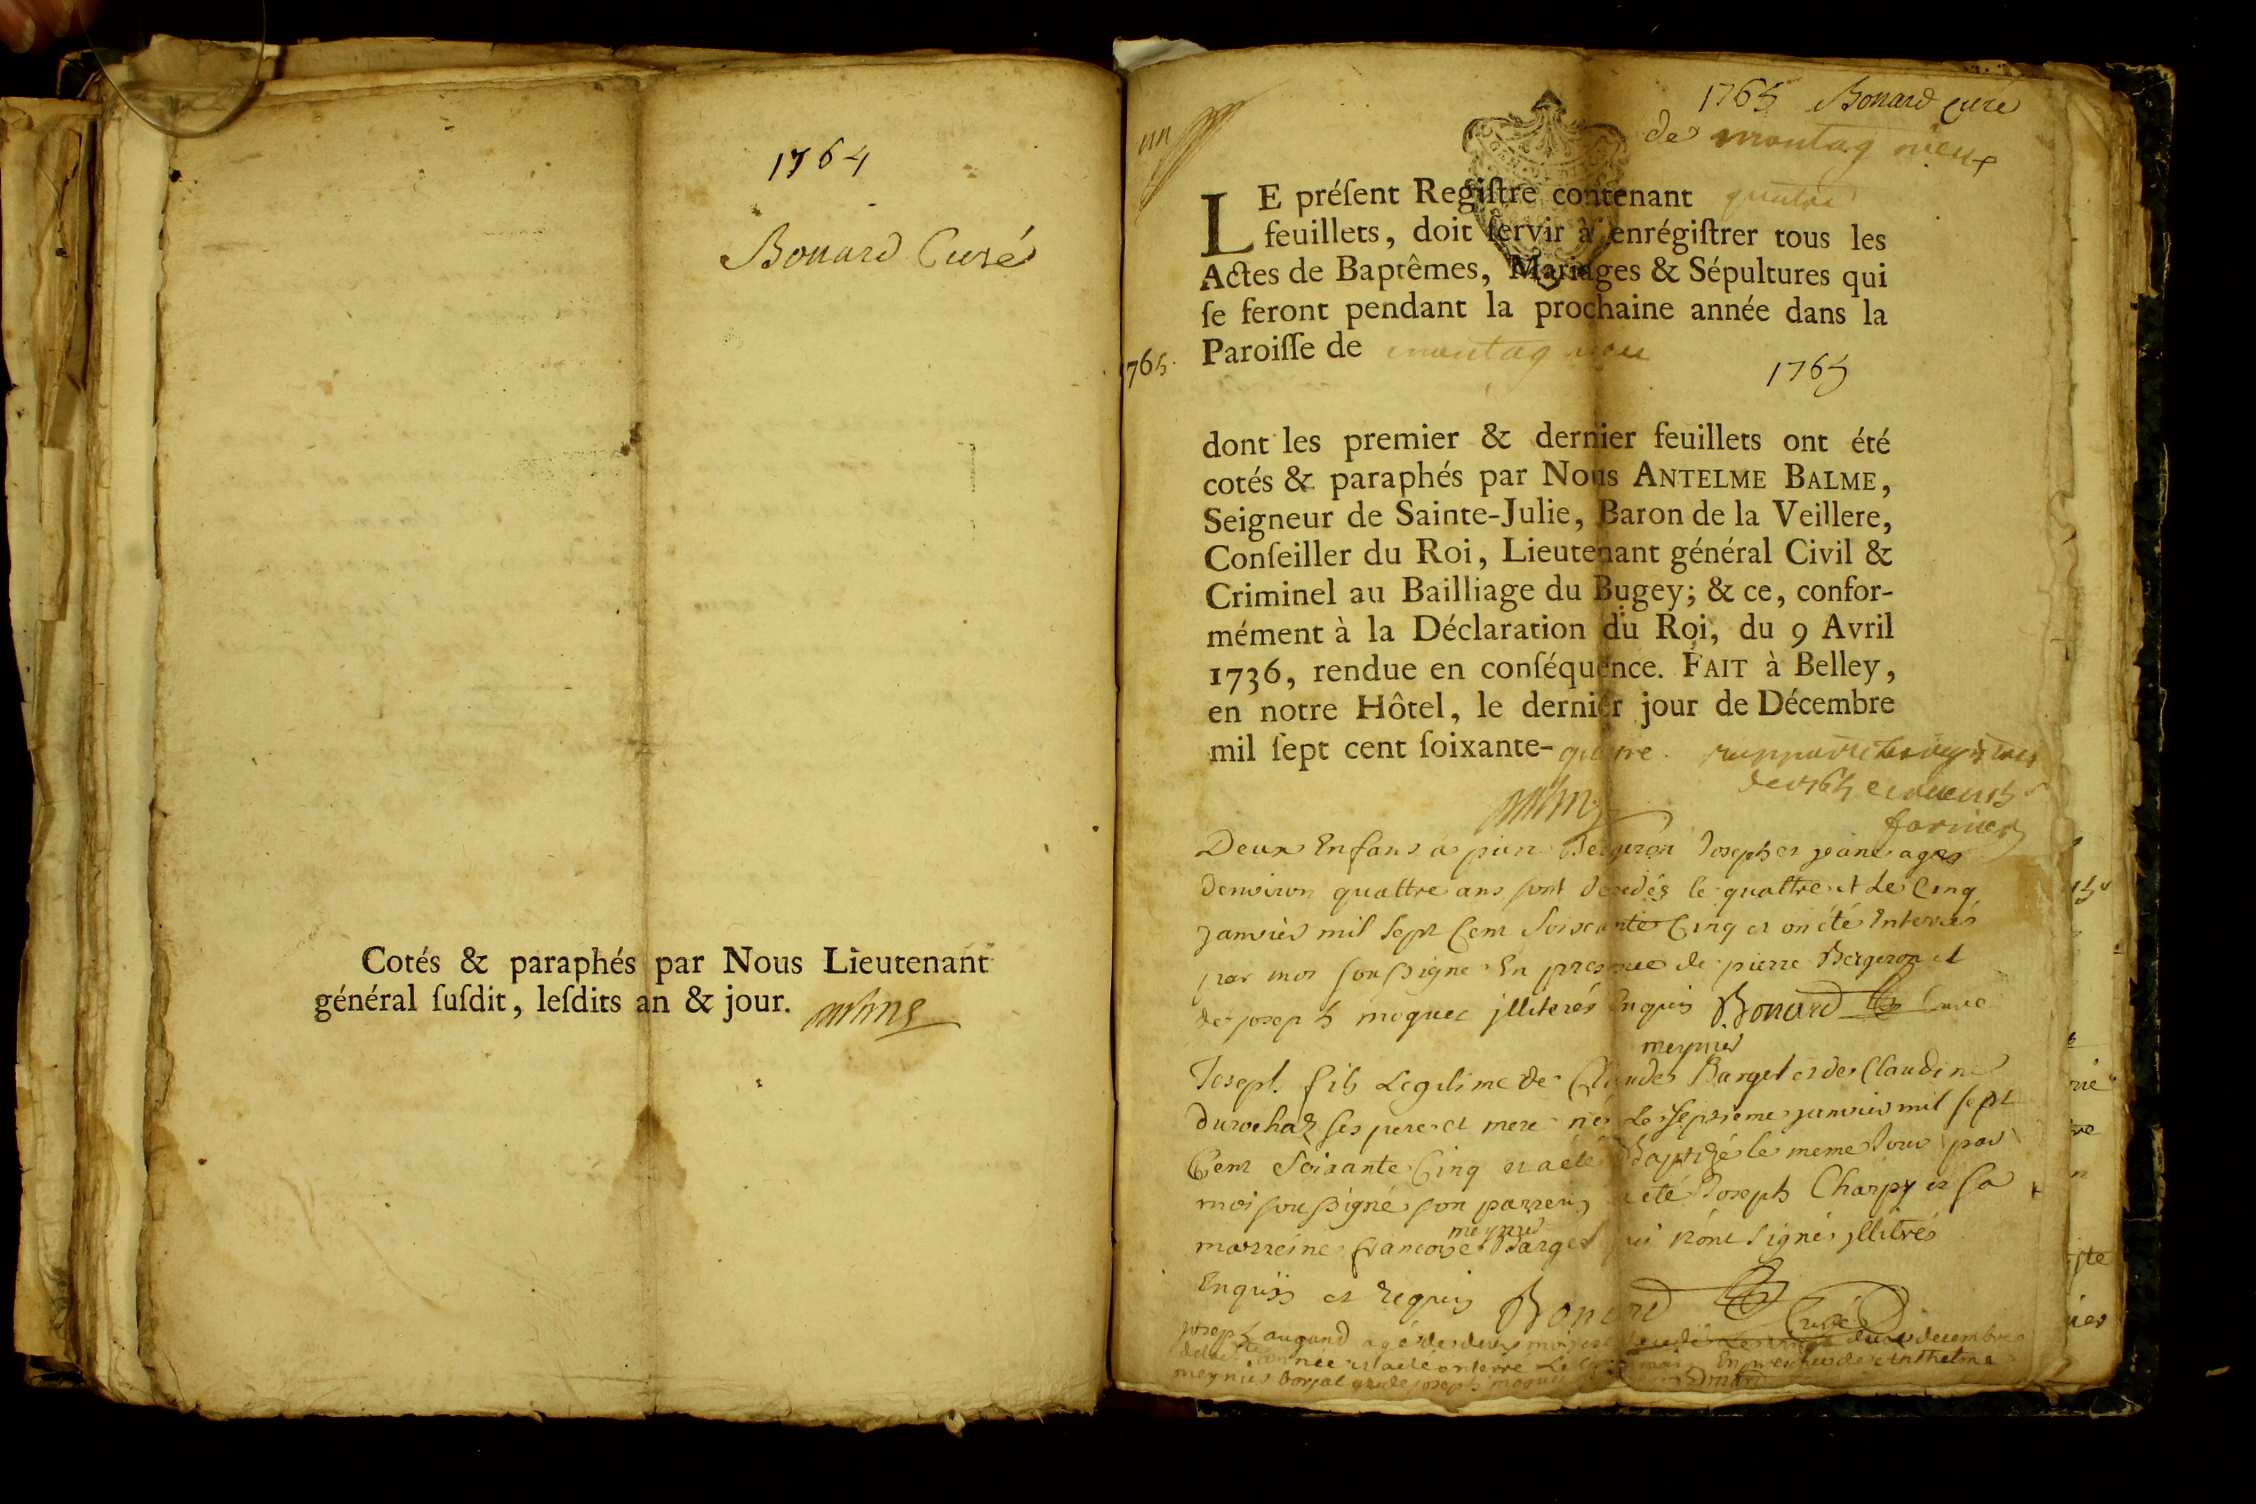 1764
Bonard Curé
Cotés & paraphés par Nous Lieutenant
général ſuſdit, leſdits an & jour.
1765 Bonard curé
de montagnieux
un
LE préſent Regiſtre contenant quatre
feuillets, doit ſervir à enrégiſtrer tous les
Actes de Baptêmes, Mariages & Sépultures qui
ſe feront pendant la prochaine année dans la
Paroiſſe de montagnieu
1765.
1765
dont les premier & dernier feuillets ont été
cotés & paraphés par Nous ANTELME BALME,
Seigneur de Sainte-Julie, Baron de la Veillere,
Conſeiller du Roi, Lieutenant général Civil &
Criminel au Bailliage du Bugey; & ce, confor-
mément à la Déclaration du Roi, du 9 Avril
1736, rendue en conſéquence. FAIT à Belley,
en notre Hôtel, le dernier jour de Décembre
mil ſept cent ſoixante-quatre.
Deux Enfans a Bergeron Joseph et ages
denviron quattre ans sont decedés le quattre et Le Cinq
janvier mil sept Cent Soixante Cinq et on été Enterrés
par moi sousigné En presence de pierre Bergeron et
de joseph moquet jlliterés Enquis Bonard Curé
meynier
Joseph fils Legitime de Claude Barget et de Claudine
durochaz ses pere et mere né Le Septieme janvier mil sept
Cent Soixante Cinq et a eté Baptizé le meme Jour par
moi sousigné son parrein a eté Joseph Charpy et sa
meynier
marreine francoise Barget qui nont signé jllitrés
Enquis et Requis Bonard Curé
joseph augand agé de deux mois decembre
année et a eté enterré Le En presence de Anthelme
meynier borjat et de joseph moquet Bonard